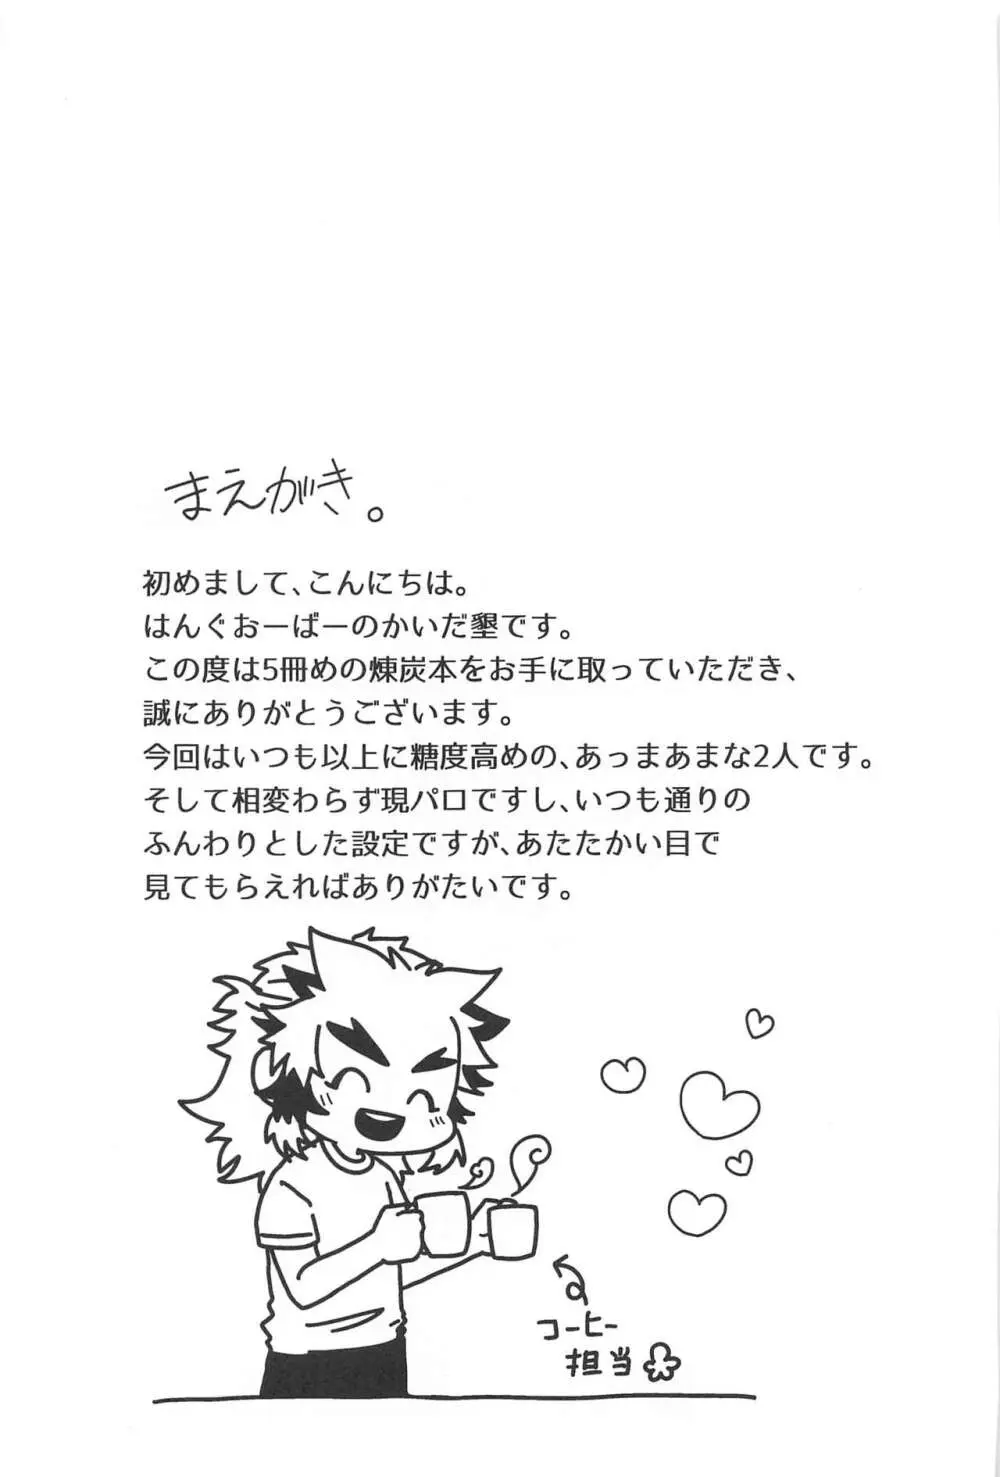 まえがき。
初めまして、こんにちは。
はんぐおーばーのかいだ墾です。
この度は5冊めの煉炭本をお手に取っていただき、
誠にありがとうございます。
今回はいつも以上に糖度高めの、あっまあまな2人です。
そして相変わらず現パロですし、いつも通りの
ふんわりとした設定ですが、あたたかい目で
見てもらえればありがたいです。
コーヒー
担当